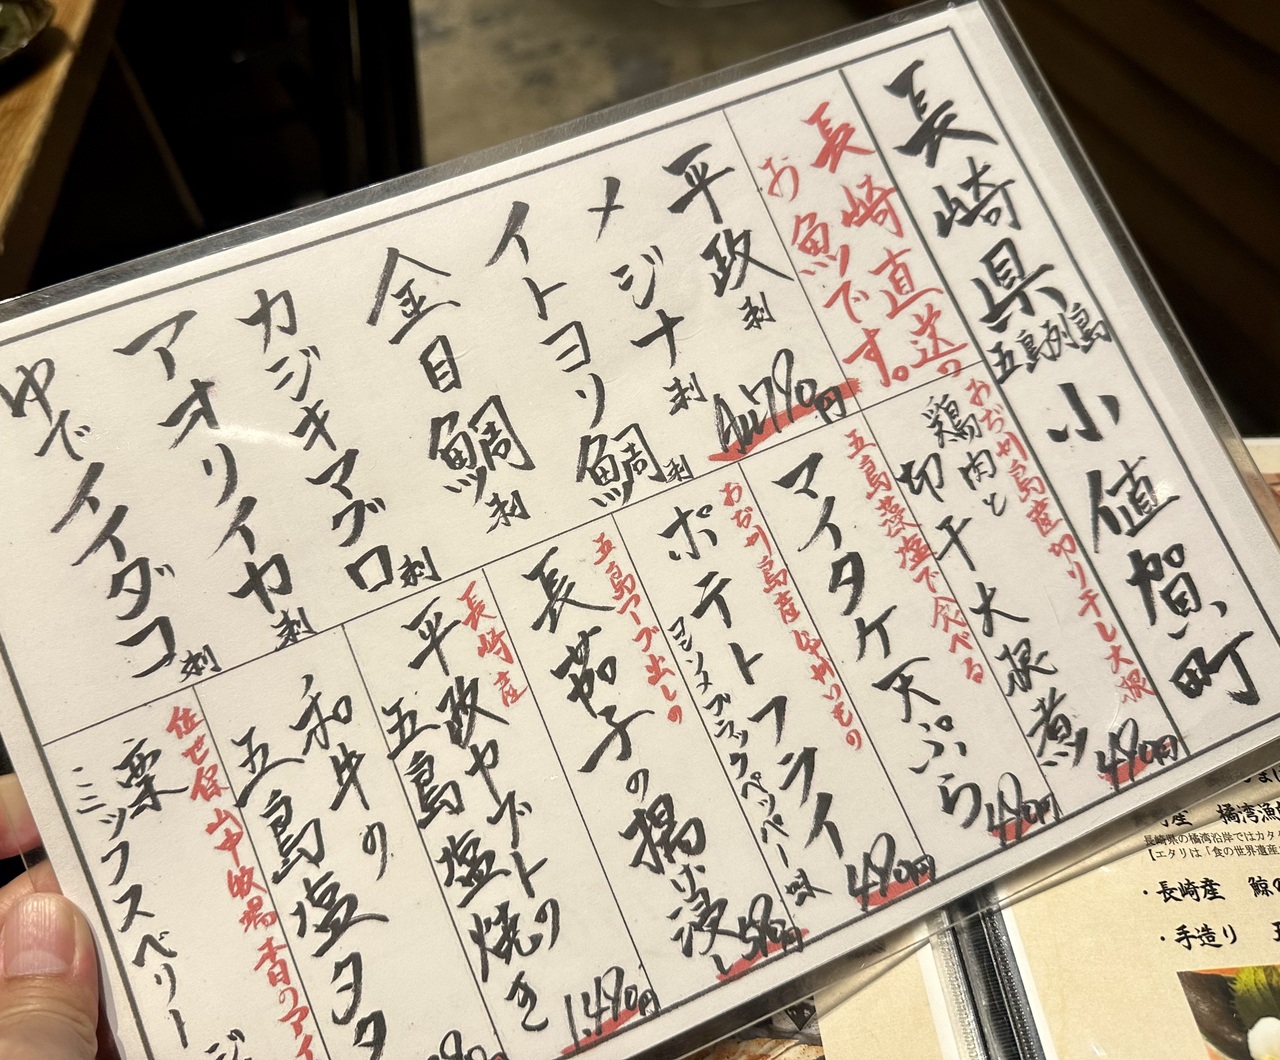 長崎県
五島列島
小値賀町
長崎直送の
お魚です。
平政刺
790円
メジナ刺
イトヨリ鯛刺
金目鯛刺
カジキマグロ刺
アオリイカ刺
ゆでイイダコ刺
おぢか島産切り干し大根
鶏肉と
切干大根煮
490円
五島藻塩で食べる
マイタケ天ぷら
490円
おぢか島産じゃがいもの
ポテトフライ
コンソメブラックペッパー味
490円
五島アゴ出しの
長茄子の揚げ浸し
長崎産
平政カブトの
五島塩焼き
1,490円
和牛の
五島塩タタ
佐世保山中牧場
のアイ
栗
ミニッツスペリー
産 橘湾漁
長崎県の橘湾沿岸ではカタ
【エタリは「食の世界遺産
・長崎産 鯨の
・手造り